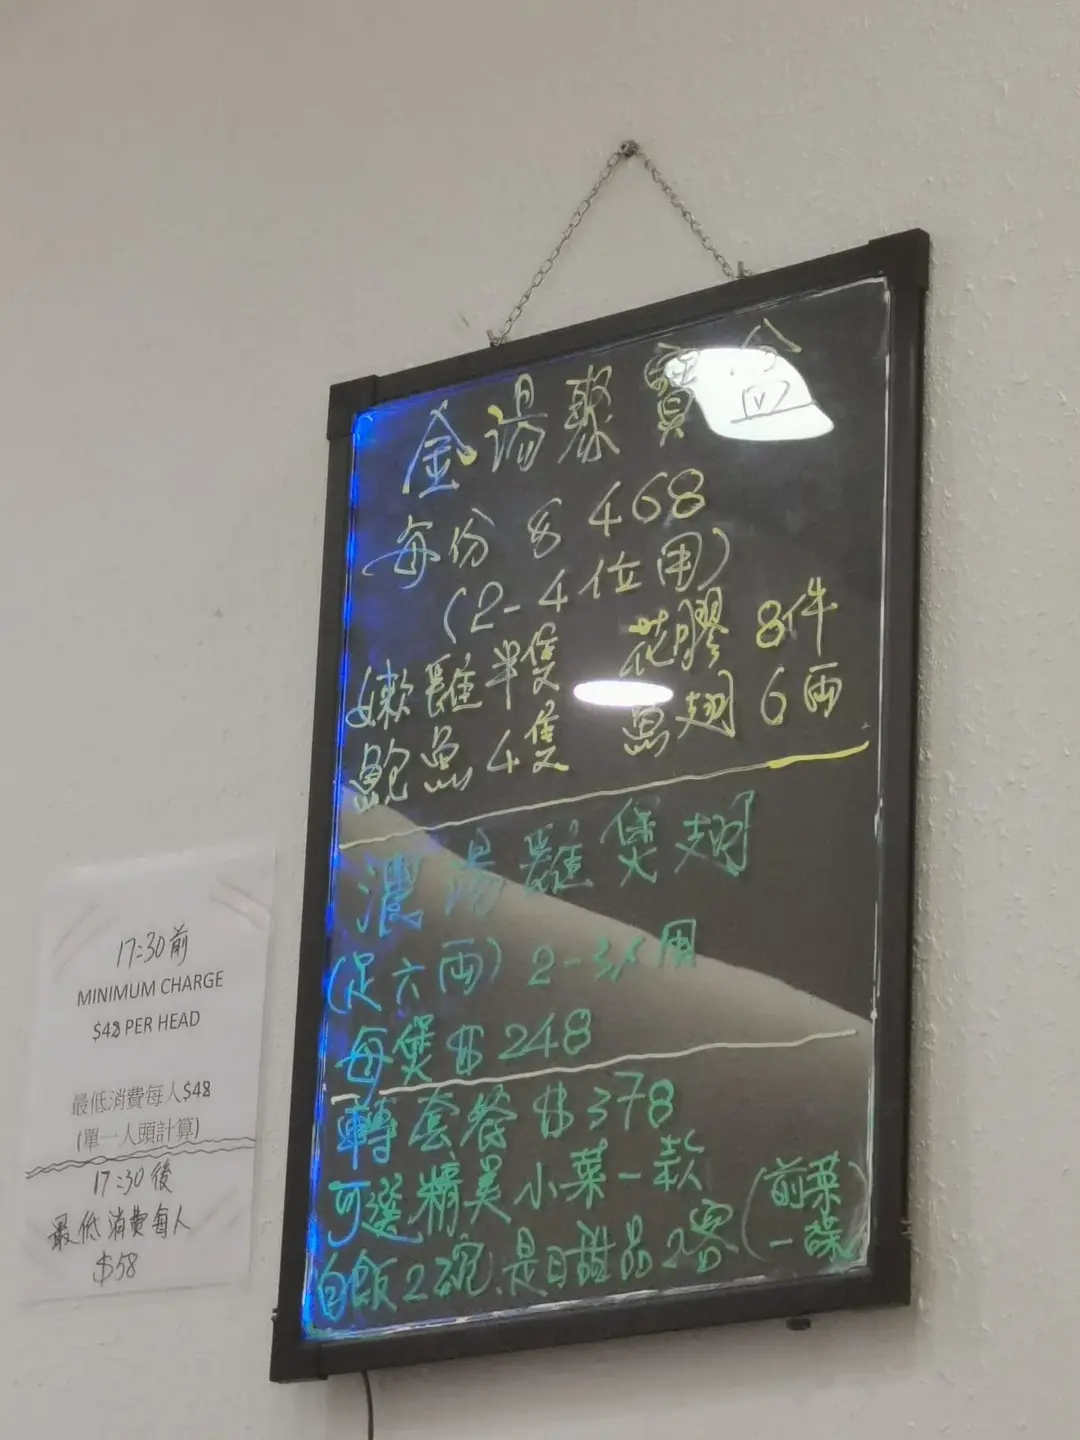 金湯聚寶盆
每份 $ 468
(2-4位用)
嫩雞半隻 花膠 8件
鮑魚4隻 魚翅 6両
濃湯雞煲翅
(足六両) 2-3人用
每煲 $ 248
轉套餐 $ 378
可選精美小菜一款
白飯2碗.是日甜品2客 (前菜一碟)
17:30前
MINIMUM CHARGE
$48 PER HEAD
最低消費每人$48
(單一人頭計算)
17:30後
最低消費每人
$58